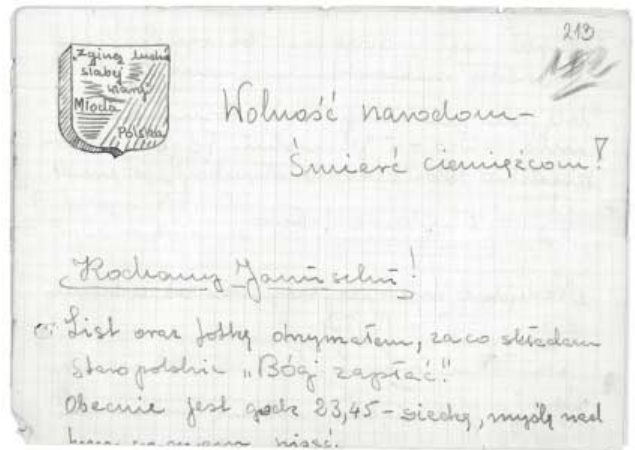 213
182
"Zginą ludzie
słabej
wiary
Młoda
Polska
Wolność narodom –
Śmierć ciemiężcom!
Kochany Januszku!
List oraz fotkę otrzymałem, za co składam
staropolskie „Bóg zapłać".
Obecnie jest godz 23,45 – siedzę, myślę nad
pisać.